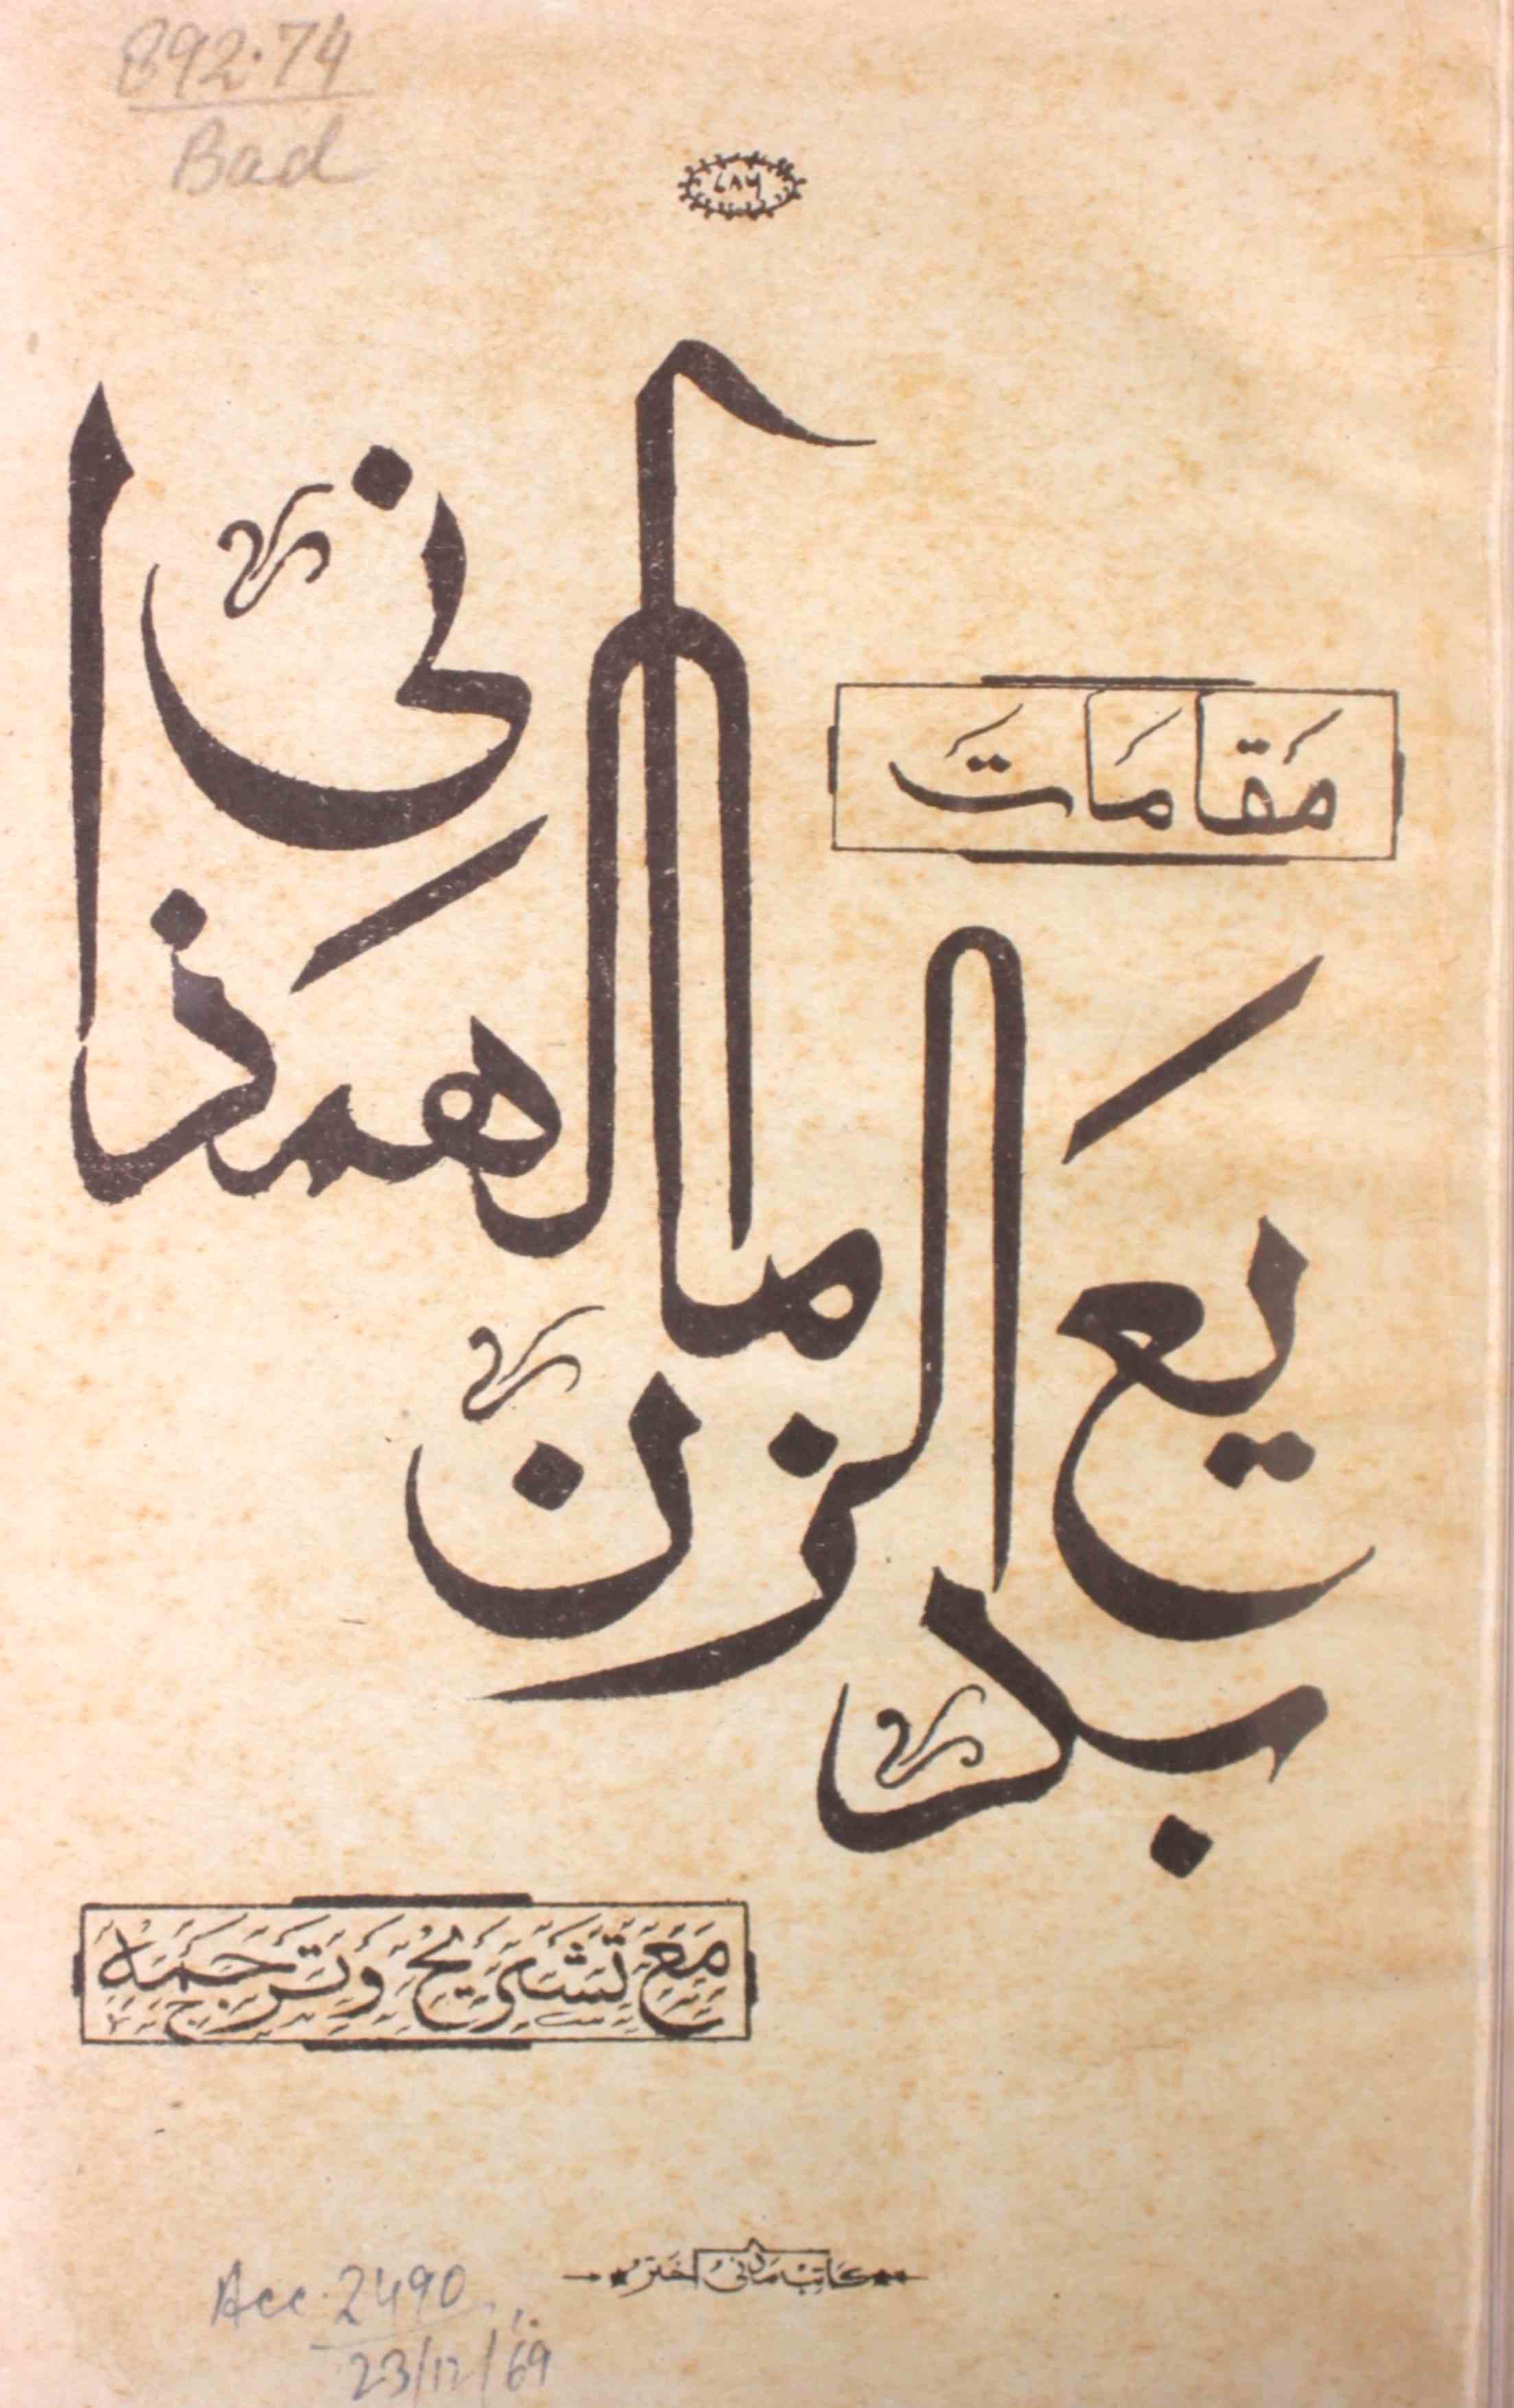 892.74
Bad
۷۸۶
مَقَامَاتَ
بديع الزمان الهمذانى
مَعَ تَشْرِيحُ وَتَرجَمَه
كاتب مدنى اختر
Acc. 2490
23/12/69